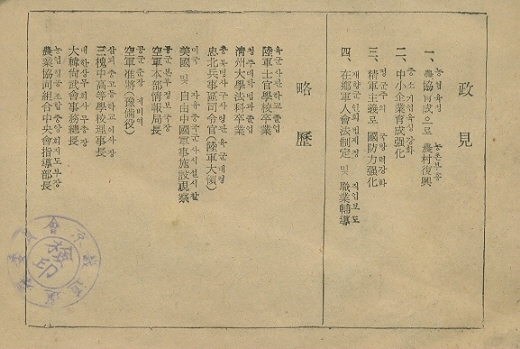 政見
一、農協育成으로 農村復興
농협육성 농촌부흥
二、中小企業育成强化
중소기업육성강화
三、精軍主義로 國防力强化
정군주의 국방력강화
四、在鄕軍人會法制定 및 職業輔導
재향군인회법제정 직업보도
略歷
陸軍士官學校卒業
육군사관학교졸업
淸州大學法科卒業
청주대학법과졸업
忠北兵事區司令官(陸軍大領)
충북병사구사령관 육군대령
美國 및 自由中國軍事施設視察
미국 자유중국군사시설시찰
空軍本部情報局長
공군본부정보국장
空軍准將(豫備役)
공군준장 예비역
三槐中高等學校理事長
삼괴중고등학교이사장
大韓尙武會事務總長
대한상무회사무총장
農業協同組合中央會指導部長
농업협동조합중앙회지도부장